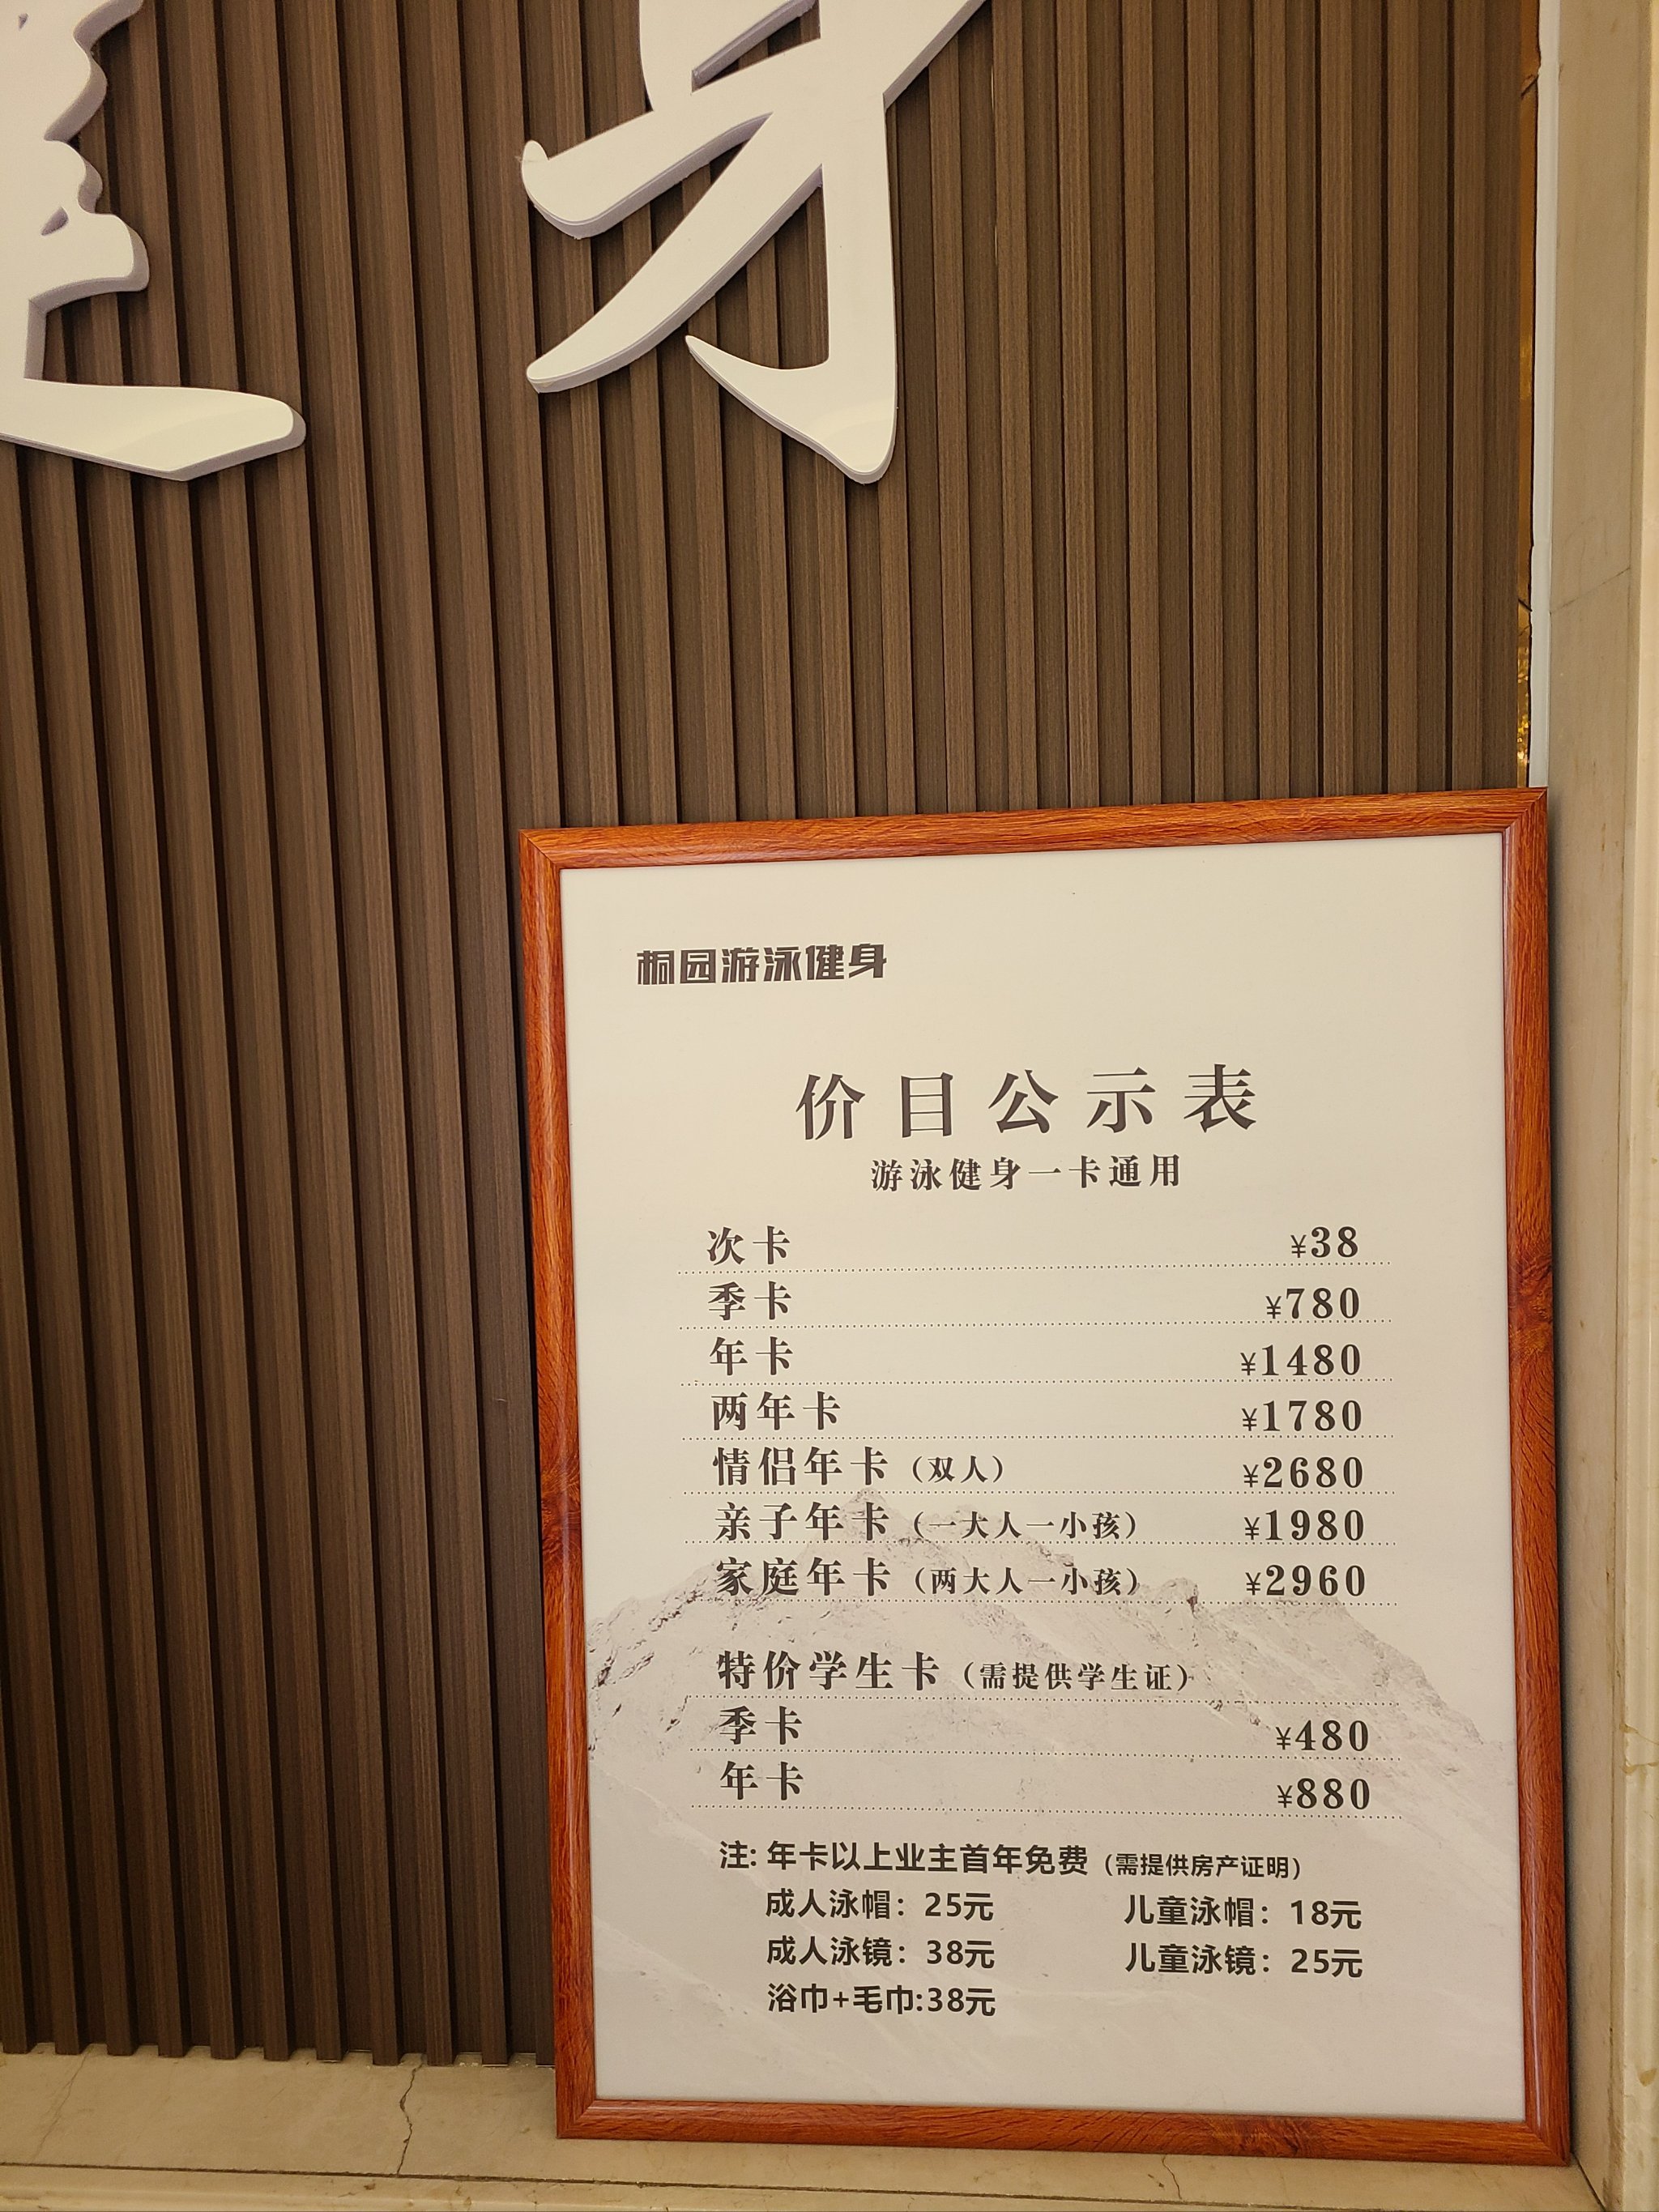 健身
桐园游泳健身
价目公示表
游泳健身一卡通用
次卡 ¥38
季卡 ¥780
年卡 ¥1480
两年卡 ¥1780
情侣年卡（双人） ¥2680
亲子年卡（一大人一小孩） ¥1980
家庭年卡（两大人一小孩） ¥2960
特价学生卡（需提供学生证）
季卡 ¥480
年卡 ¥880
注: 年卡以上业主首年免费（需提供房产证明）
成人泳帽：25元 儿童泳帽：18元
成人泳镜：38元 儿童泳镜：25元
浴巾+毛巾:38元